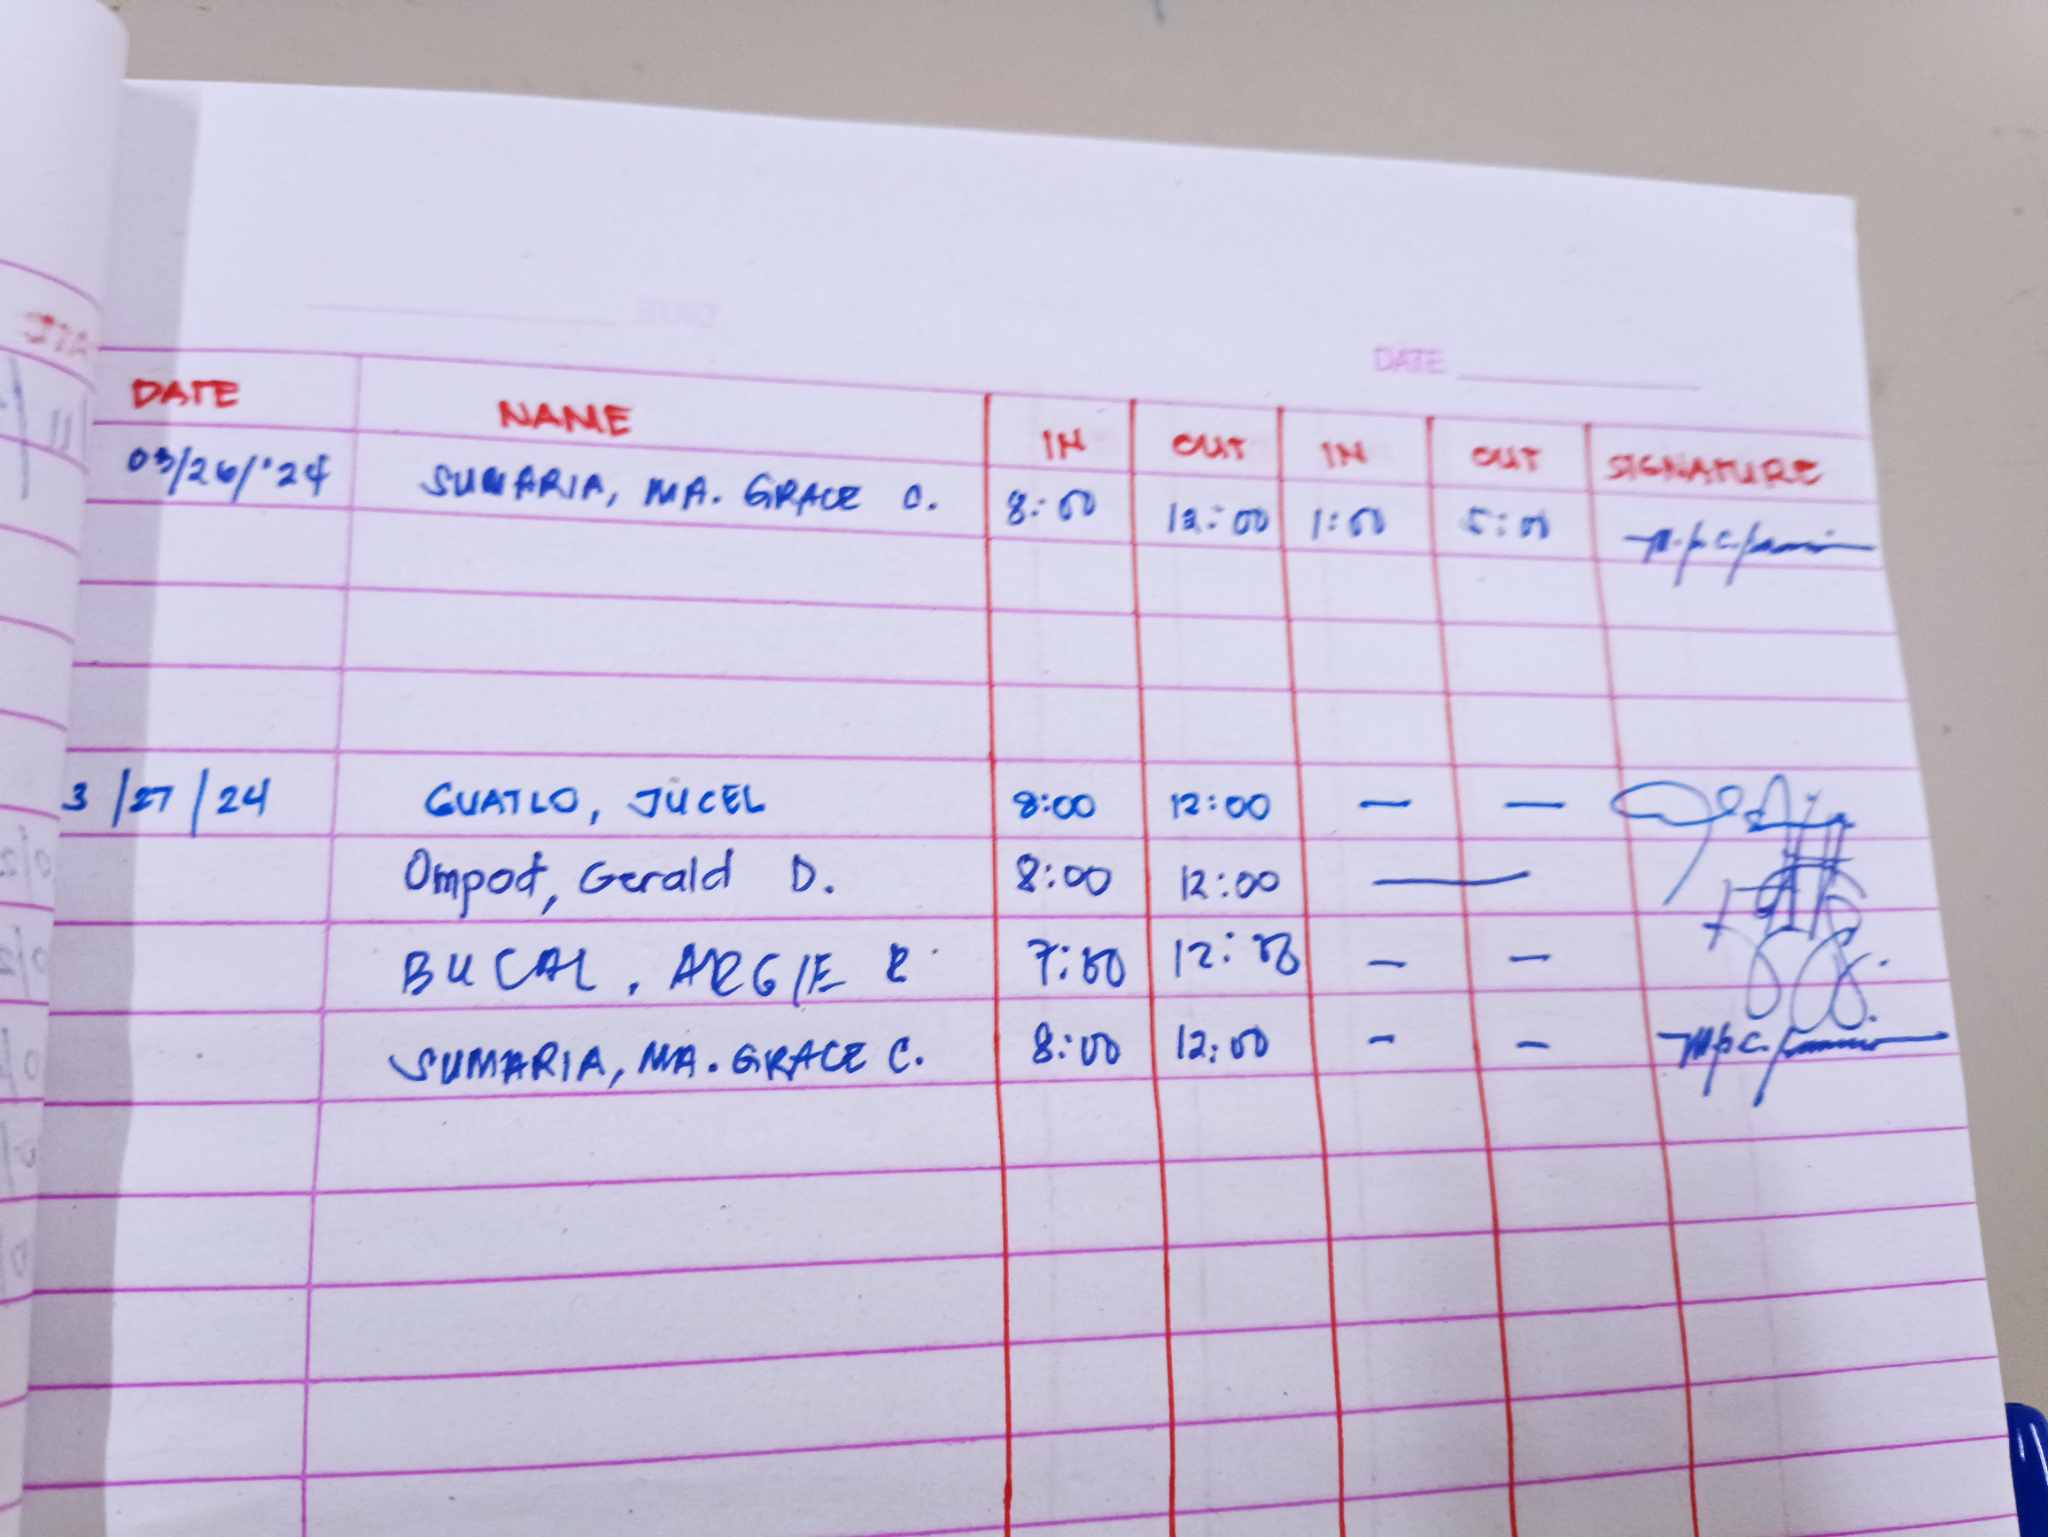 STORY
DATE
DATE NAME IN OUT IN OUT SIGNATURE
03/26/'24 SUMARIA, MA. GRACE C. 8:00 12:00 1:00 5:00
3/27/24 GUATLO, JUCEL 8:00 12:00 — —
Ompod, Gerald D. 8:00 12:00 —
BUCAL, ARGIE R. 7:00 12:00 - -
SUMARIA, MA. GRACE C. 8:00 12:00 - -